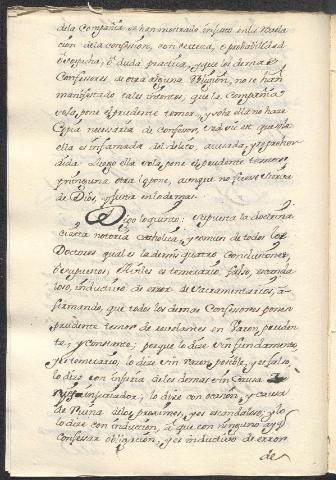 de la Compañia se han mostrado infieles en la Revela
cion de la confesion, con certeza, o probabilidad
o sospecha, o duda practica, y que los demas
Confesores de otra alguna Religion, no se han
manifestado tales intentos, que la Compañia
sola, pone el prudente temor, y sola ella no hace
Copia necesaria de Confesor, que
ella es infamada del delito, acusada, y reprehen
dida. Luego ella sola, pone el prudente temor,
y ninguna otra lo pone, aunque no fuese Sierva
de Dios, en lo demas.
Digo lo quinto: supuesta la doctrina
cierta notoria catholica, y comun de todos los
Doctores qual es la de mis quatro Conclusiones,
es temerario, falso, escanda
loso, inductivo de error de Sacramentarios, a
firmando, que todos los demas Confesores ponen
prudente temor de revelarles en Varon pruden
te, y constante; porque lo dice sin fundamento,
y es temerario, lo dice sin razon posible, y es falso,
lo dice con injuria de los demas sin Causa
lo dice con ocasion, y causa
de Ruina de los proximos, y es escandaloso; y lo
lo dice con induccion, a que con ninguno ay
Confesar obligacion; y es inductivo de error
de